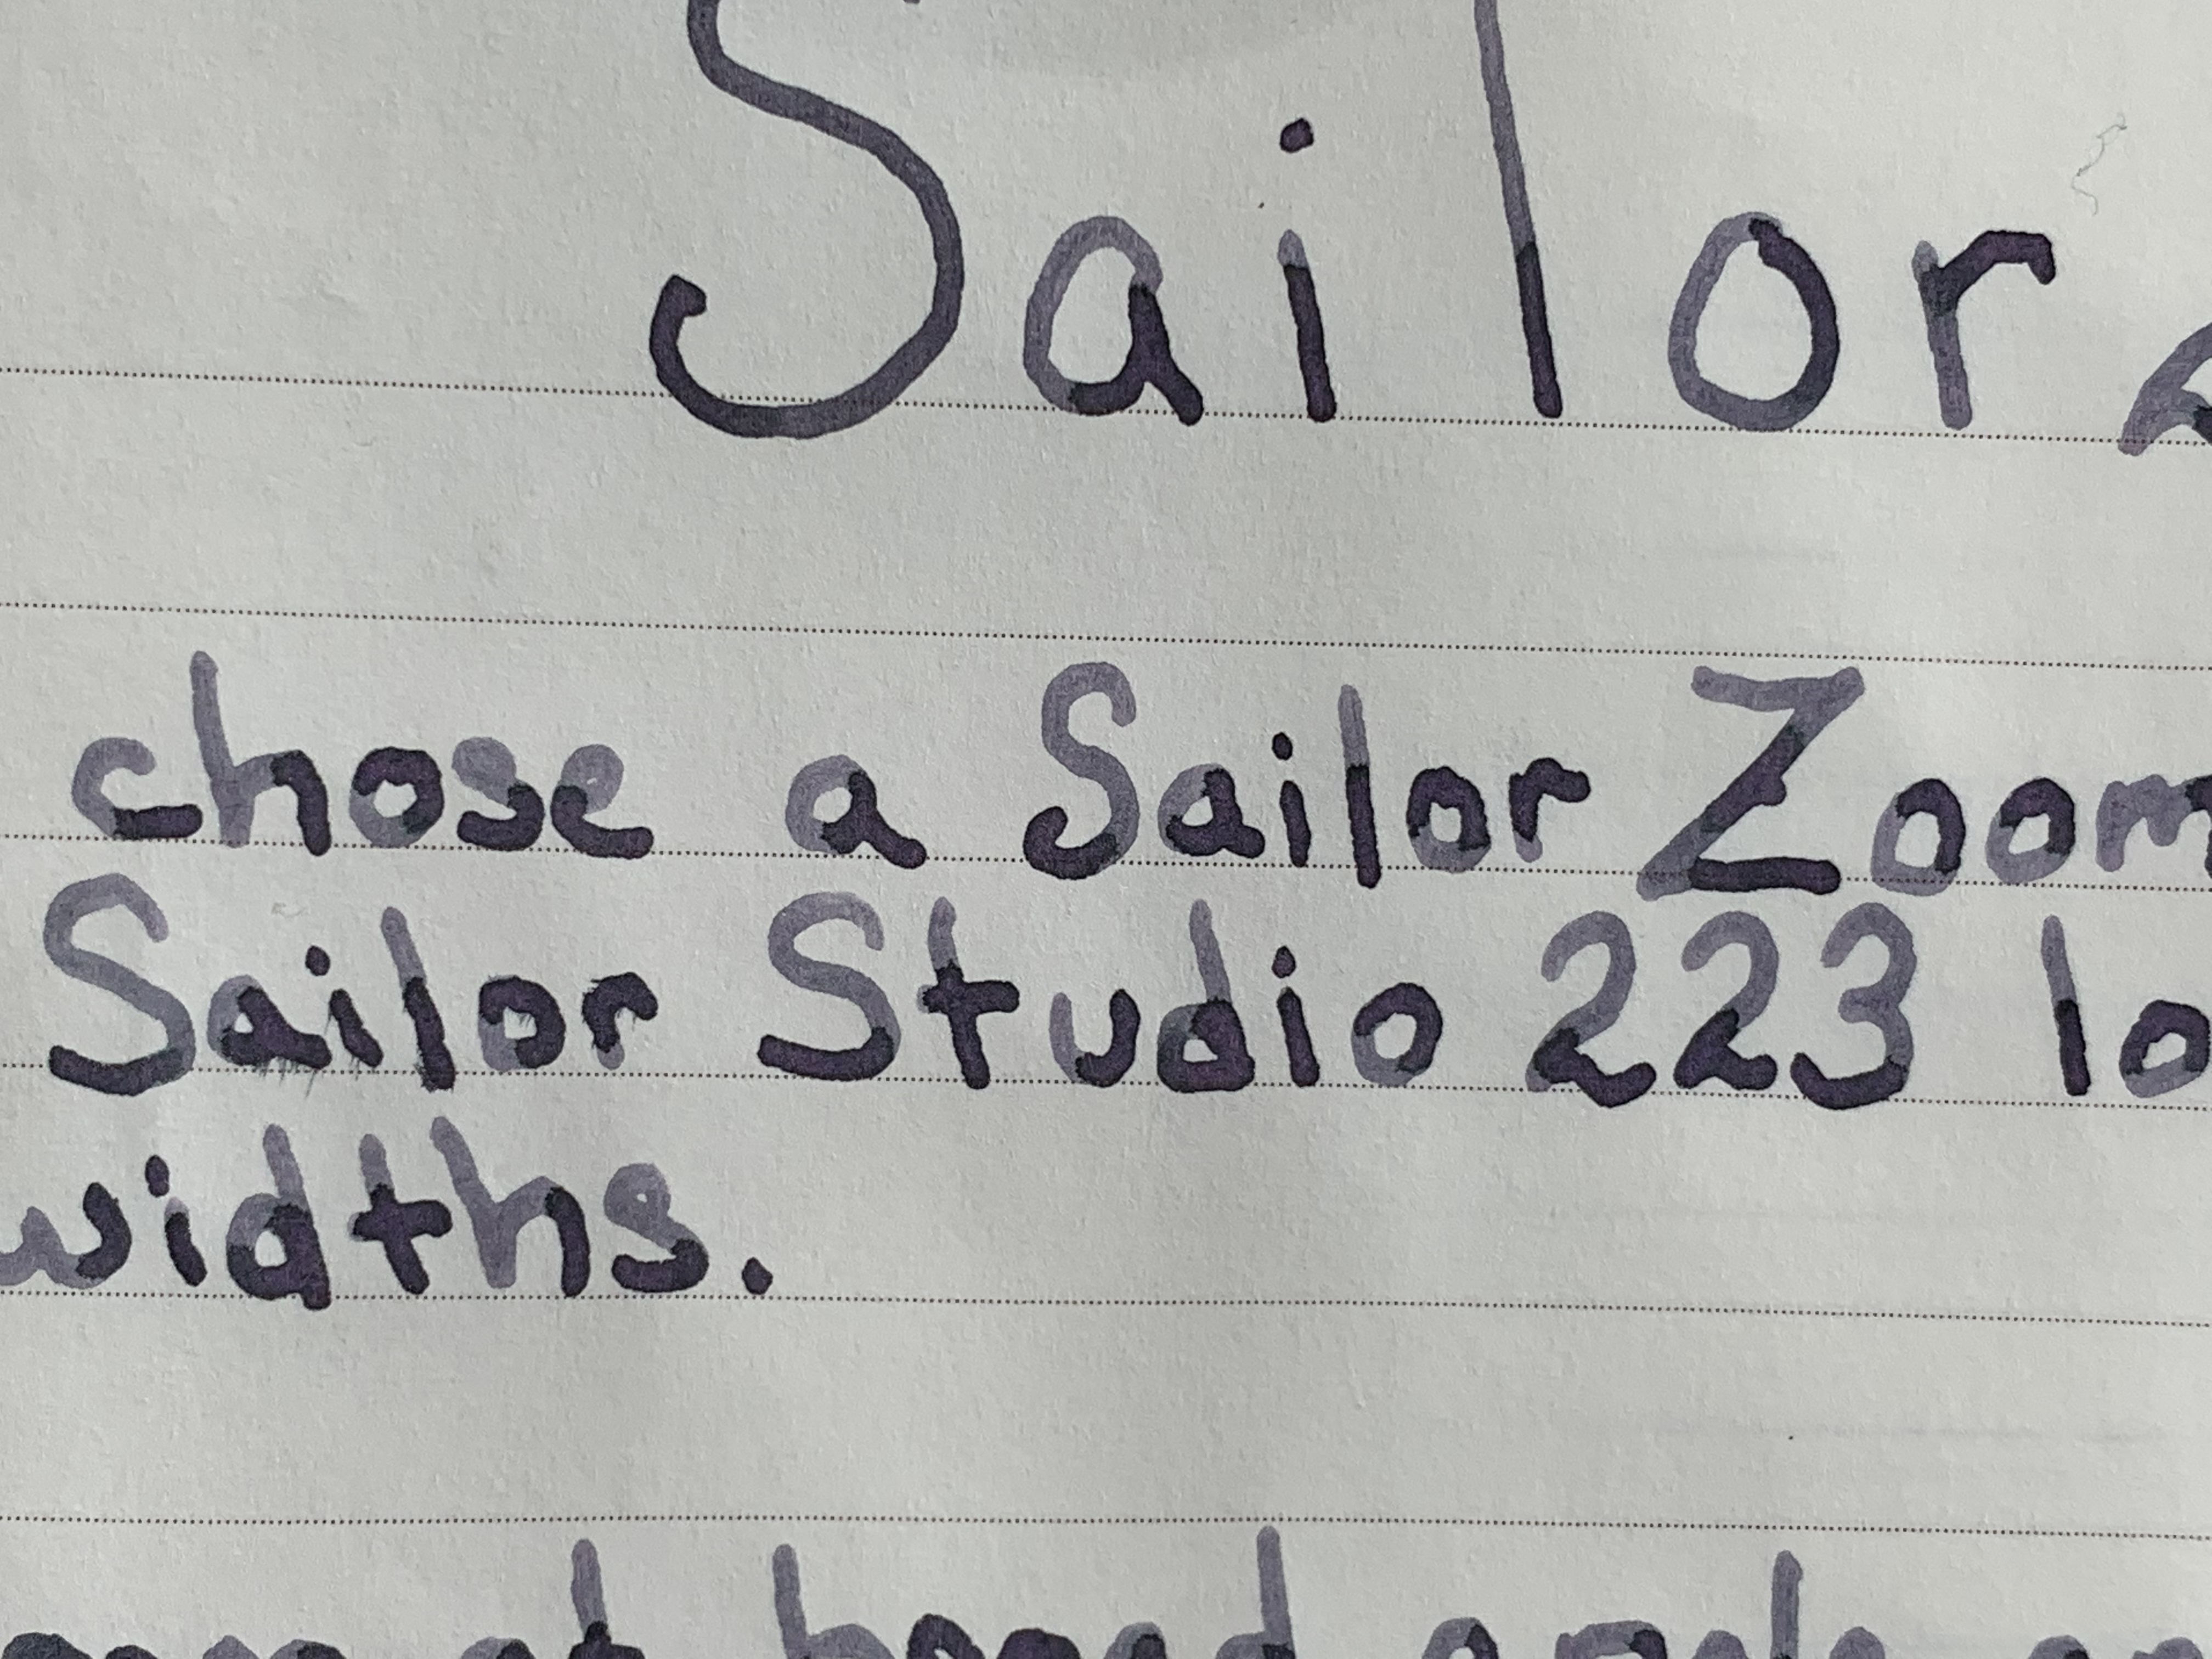 Sailor
chose a Sailor Zoom
Sailor Studio 223 lo
widths.